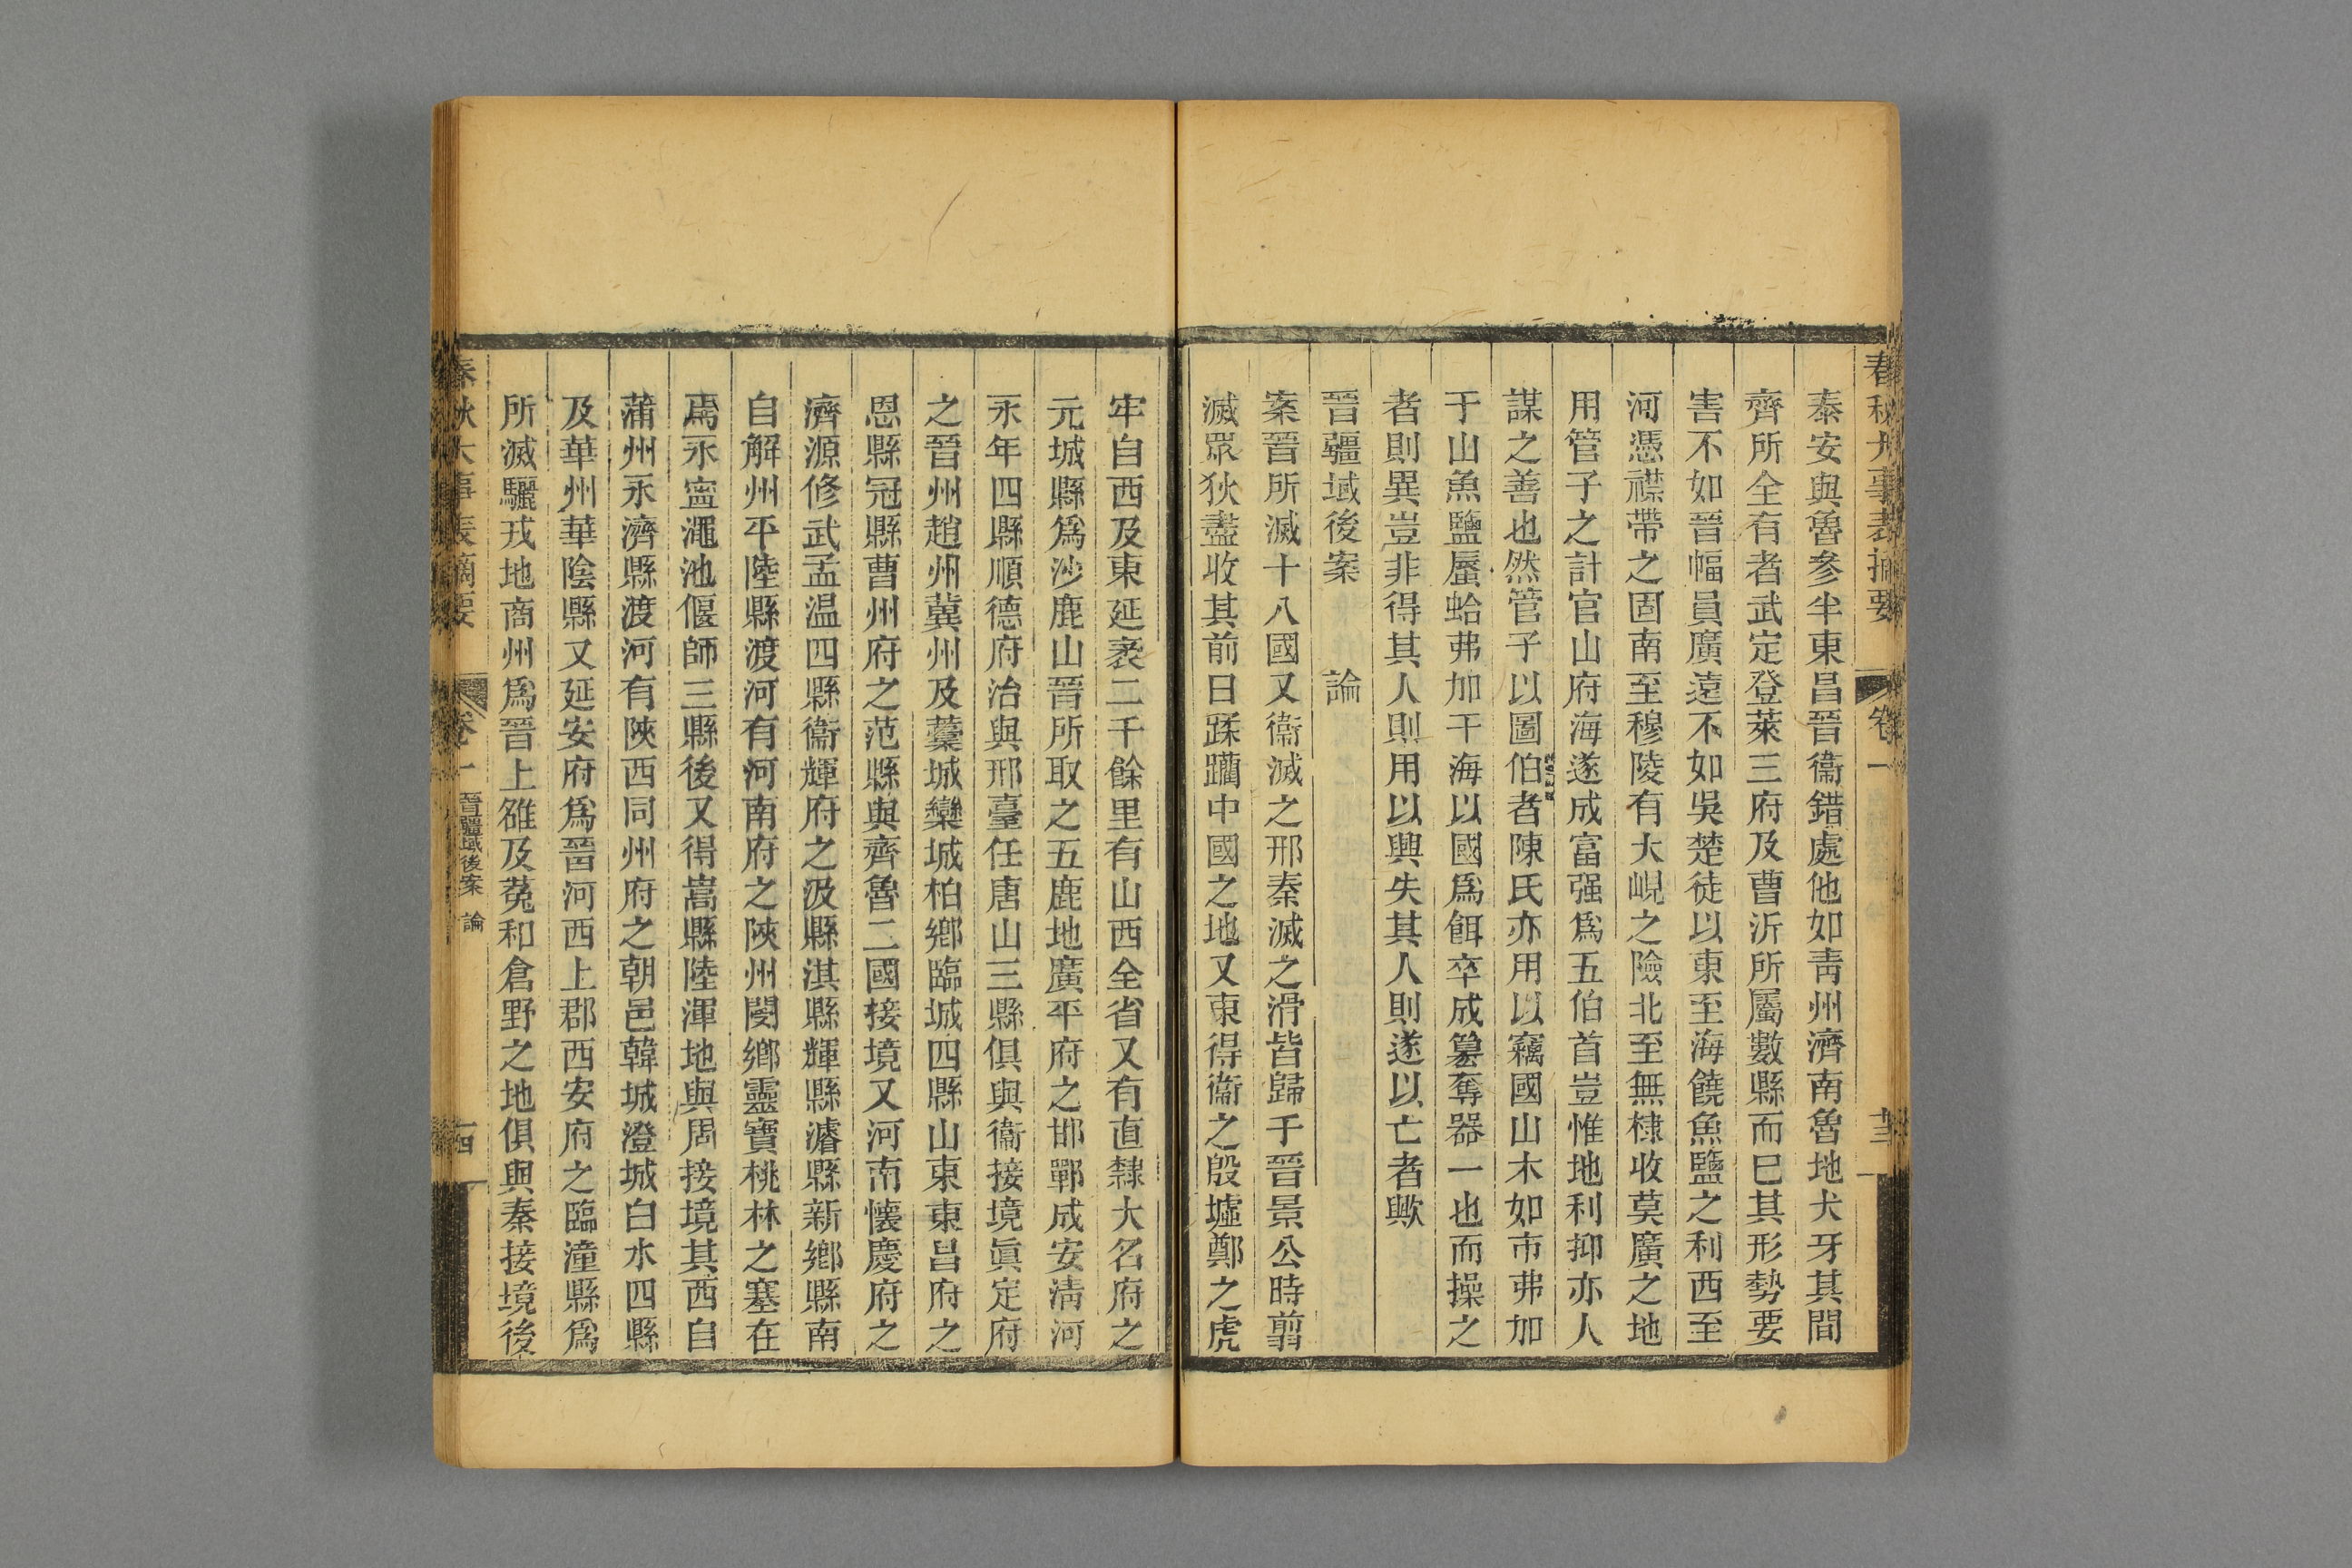 春秋大事表摘要 卷一 十三
泰安與魯參半東昌晉衞錯處他如靑州濟南魯地犬牙其間
齊所全有者武定登萊三府及曹沂所屬數縣而已其形勢要
害不如晉幅員廣遠不如吳楚徒以東至海饒魚鹽之利西至
河憑襟帶之固南至穆陵有大峴之險北至無棣收莫廣之地
用管子之計官山府海遂成富强爲五伯首豈惟地利抑亦人
謀之善也然管子以圖伯者陳氏亦用以竊國山木如市弗加
于山魚鹽蜃蛤弗加于海以國爲餌卒成簒奪器一也而操之
者則異豈非得其人則用以興失其人則遂以亡者歟
晉疆域後案 論
案晉所滅十八國又衞滅之邢秦滅之滑皆歸于晉景公時翦
滅眾狄盡收其前日蹂躪中國之地又東得衞之殷墟鄭之虎
牢自西及東延袤二千餘里有山西全省又有直隸大名府之
元城縣爲沙鹿山晉所取之五鹿地廣平府之邯鄲成安淸河
永年四縣順德府治與邢臺任唐山三縣俱與衞接境眞定府
之晉州趙州冀州及藁城欒城柏鄉臨城四縣山東東昌府之
恩縣冠縣曹州府之范縣與齊魯二國接境又河南懷慶府之
濟源修武孟温四縣衞輝府之汲縣淇縣輝縣濬縣新鄉縣南
自解州平陸縣渡河有河南府之陜州閿鄉靈寶桃林之塞在
焉永寧澠池偃師三縣後又得嵩縣陸渾地與周接境其西自
蒲州永濟縣渡河有陜西同州府之朝邑韓城澄城白水四縣
及華州華陰縣又延安府爲晉河西上郡西安府之臨潼縣爲
所滅驪戎地商州爲晉上雒及菟和倉野之地俱與秦接境後
春秋大事表摘要 卷一 晉疆域後案 論 十四